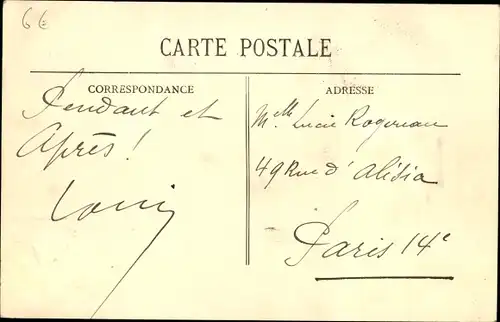 66
CARTE POSTALE
CORRESPONDANCE
Pendant et
Après!
Louis
ADRESSE
Melle Lucie Rogereau
49 Rue d'Alésia
Paris 14e